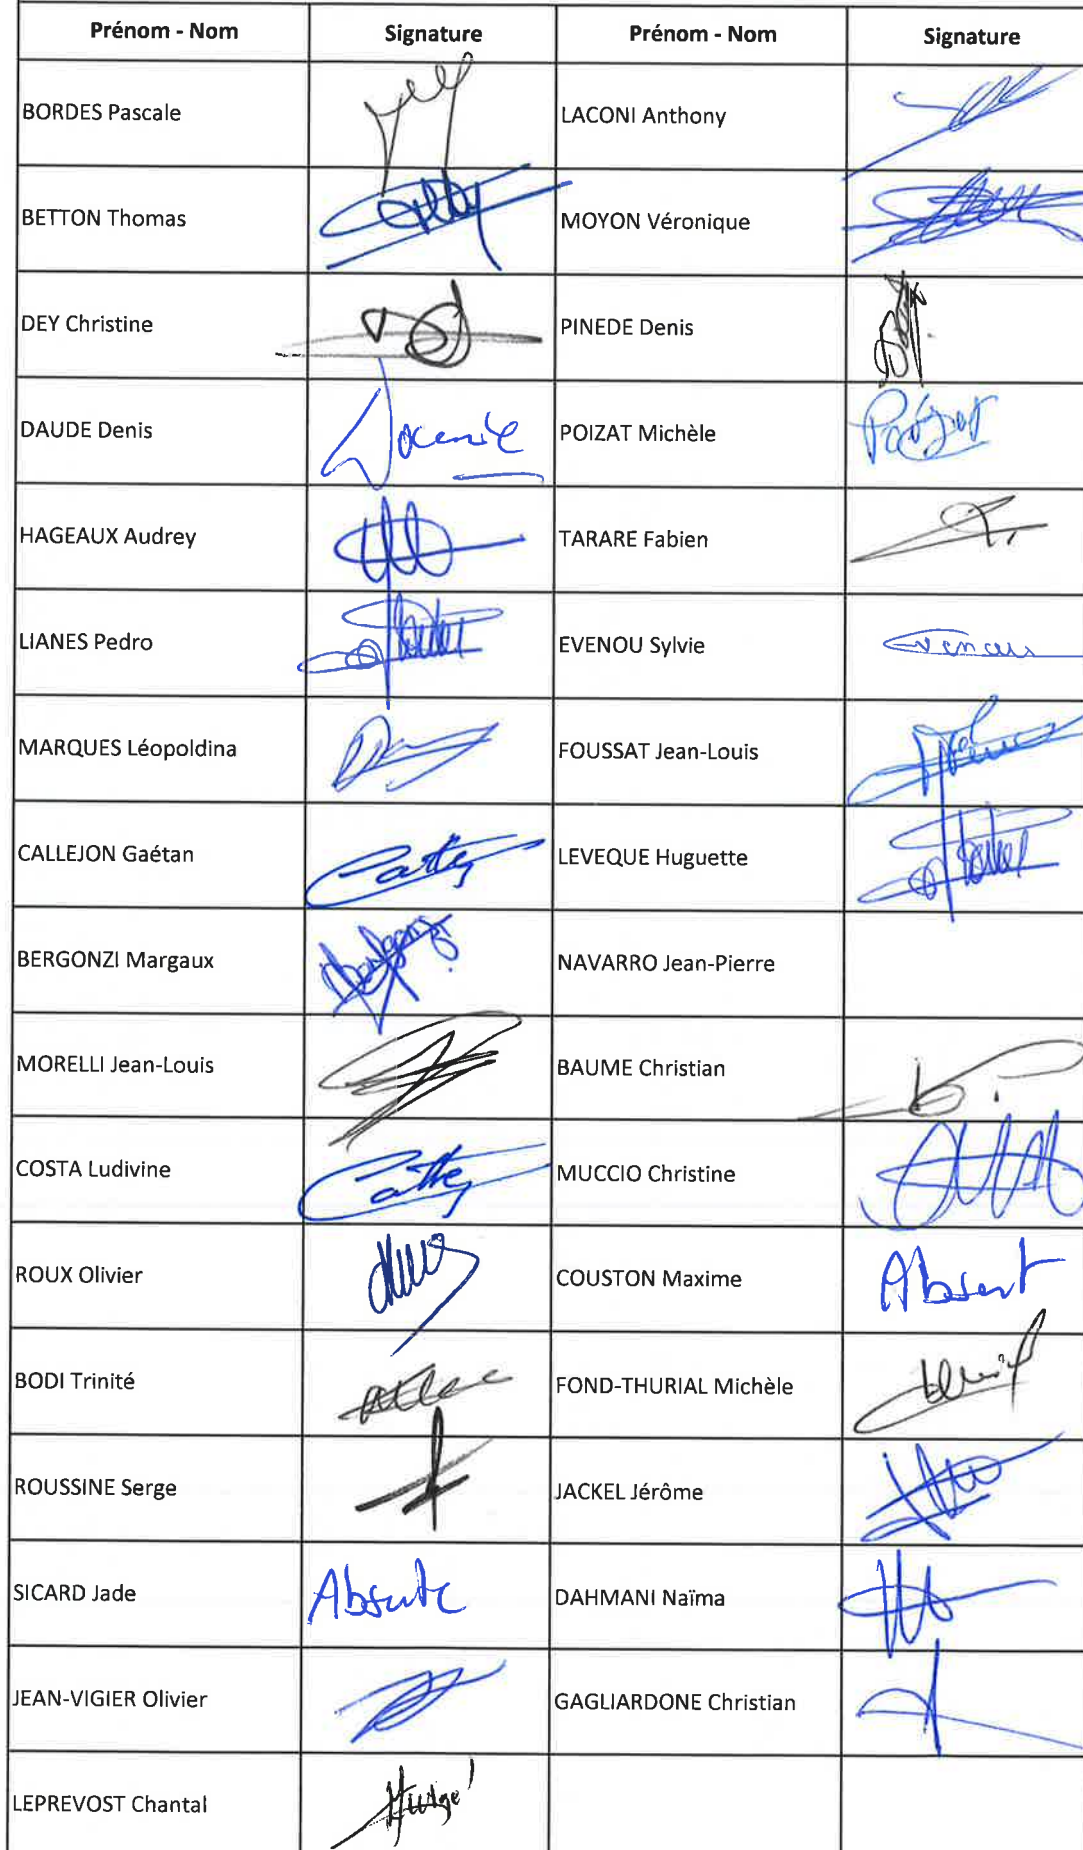 Prénom - Nom Signature Prénom - Nom Signature
BORDES Pascale LACONI Anthony
BETTON Thomas MOYON Véronique
DEY Christine PINEDE Denis
DAUDE Denis POIZAT Michèle Poizat
HAGEAUX Audrey TARARE Fabien
LIANES Pedro EVENOU Sylvie Evenou
MARQUES Léopoldina FOUSSAT Jean-Louis
CALLEJON Gaétan LEVEQUE Huguette
BERGONZI Margaux NAVARRO Jean-Pierre
MORELLI Jean-Louis BAUME Christian
COSTA Ludivine MUCCIO Christine
ROUX Olivier COUSTON Maxime Absent
BODI Trinité FOND-THURIAL Michèle
ROUSSINE Serge JACKEL Jérôme
SICARD Jade Absente DAHMANI Naïma
JEAN-VIGIER Olivier GAGLIARDONE Christian
LEPREVOST Chantal